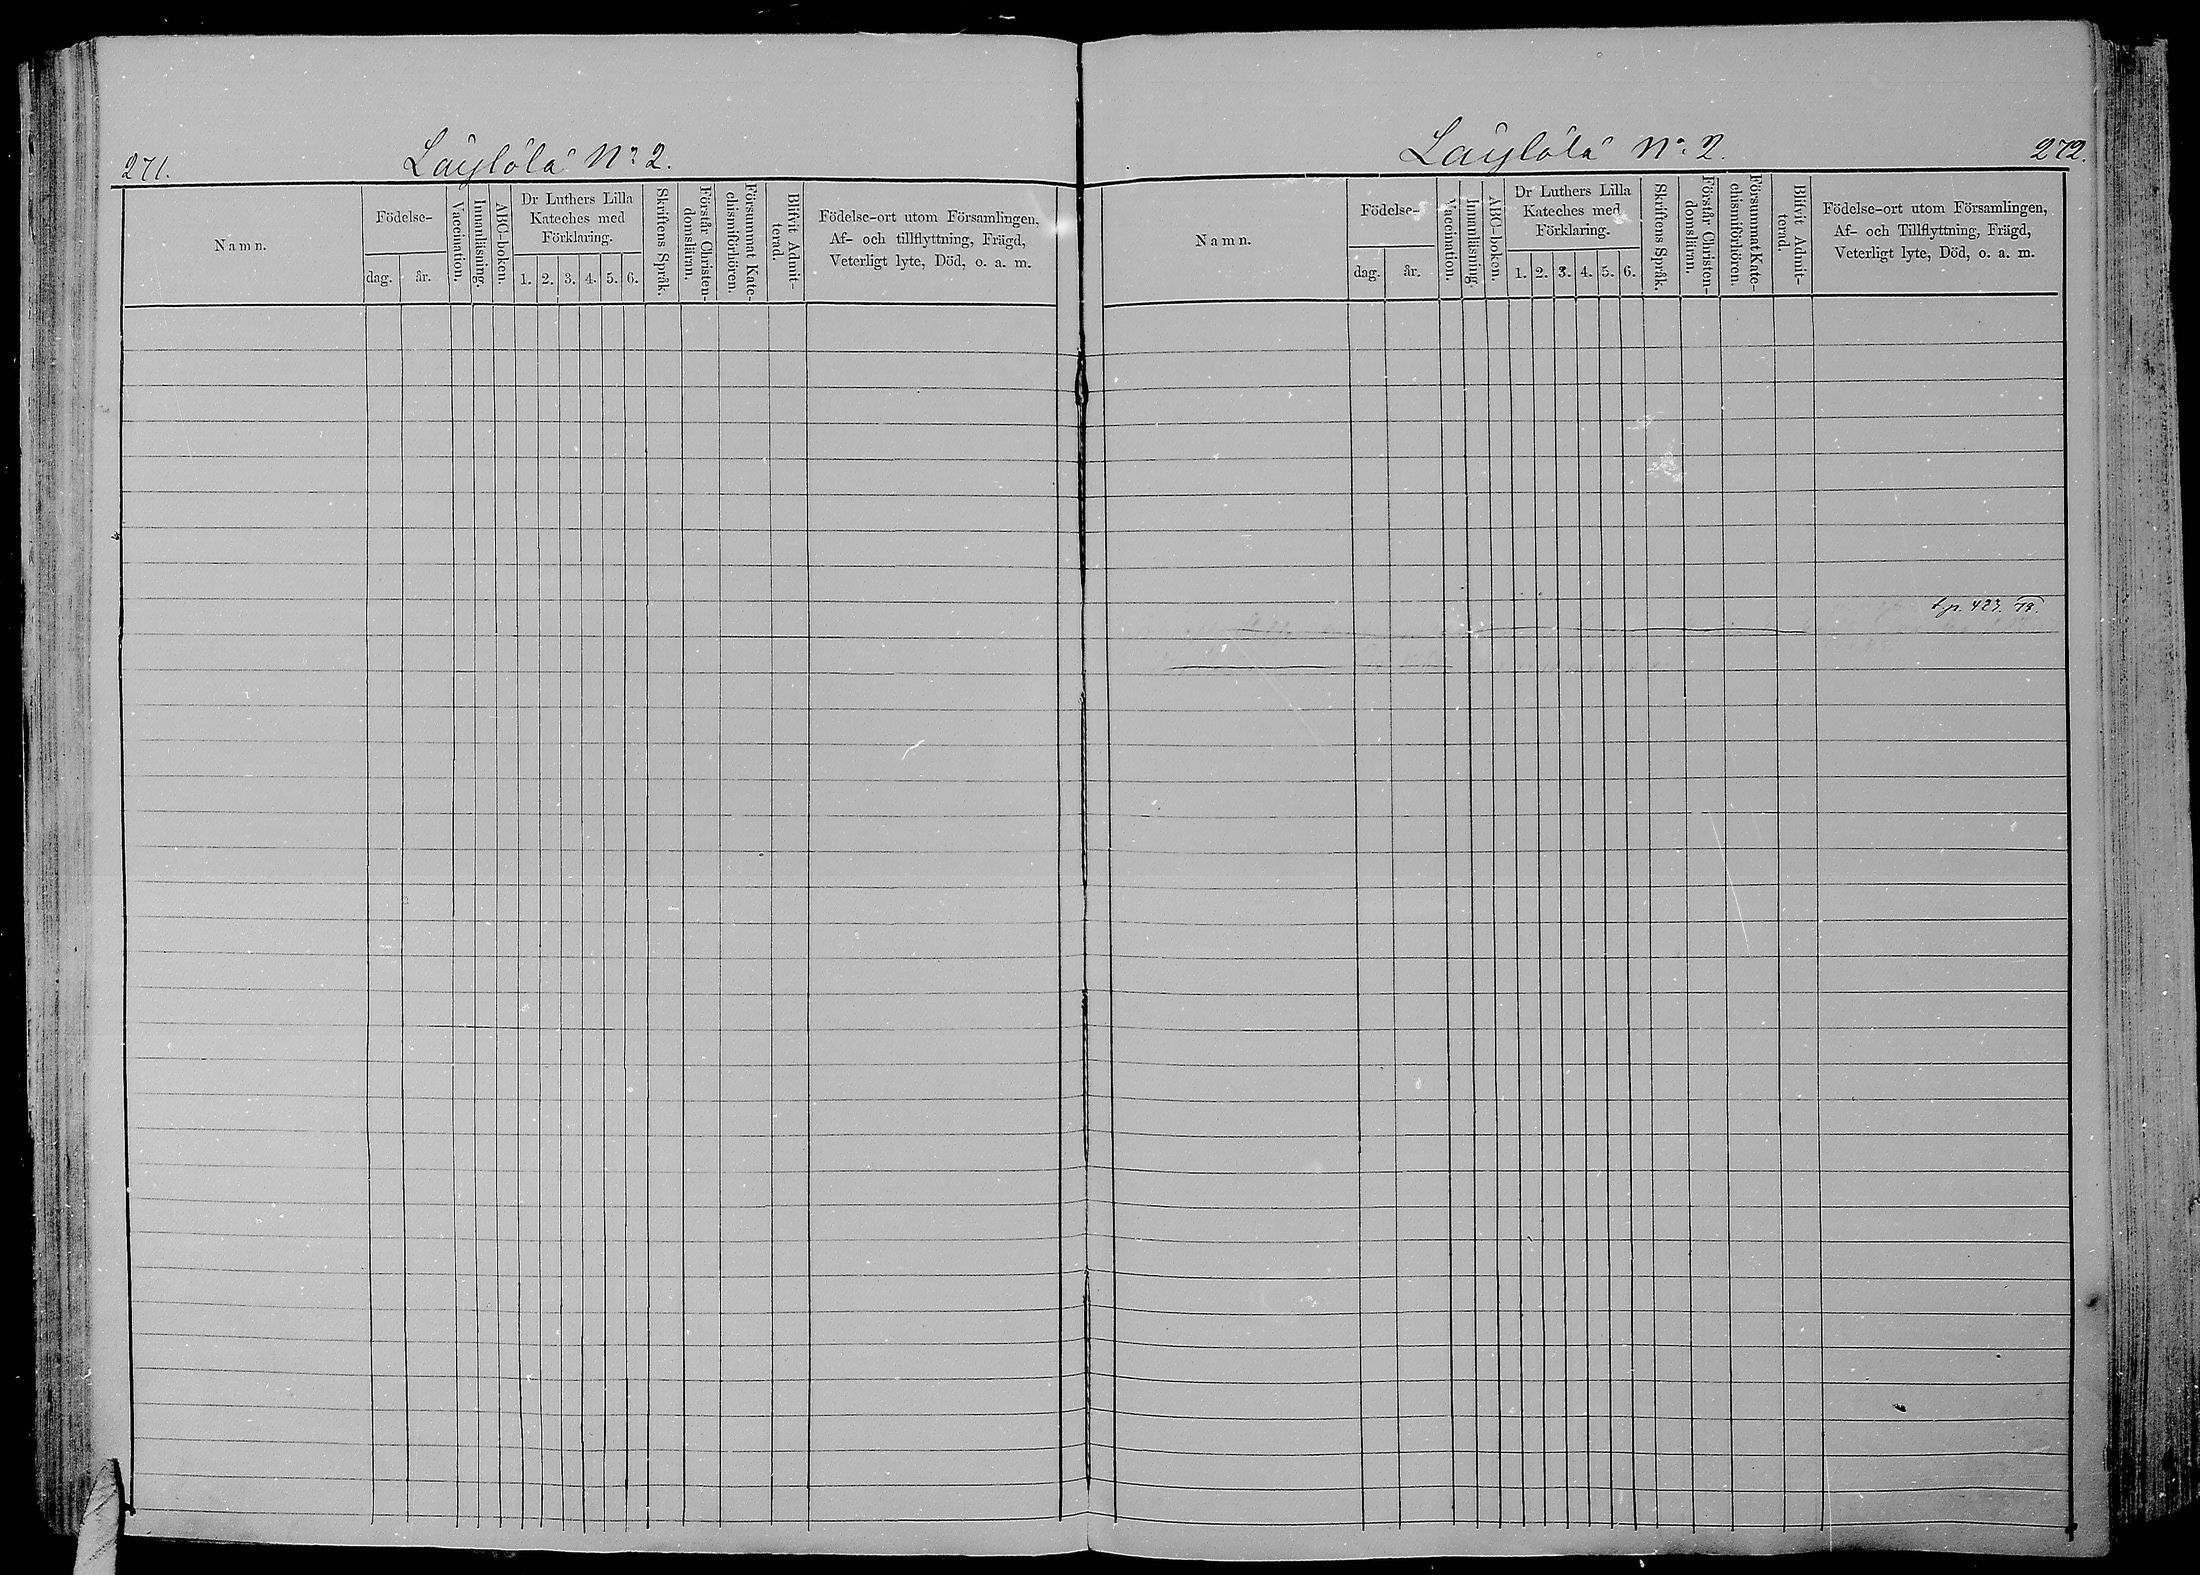 271. Läylölä N:o 2.
Namn.
Födelse-
dag. år.
Vaccination.
Innanläsning.
ABC-boken.
Dr Luthers Lilla
Kateches med
Förklaring.
1. 2. 3. 4. 5. 6.
Skriftens Språk.
Förstår Christen-
domsläran.
Försummat Kate-
chismiförhören.
Blifvit Admit-
terad.
Födelse-ort utom Församlingen,
Af- och tillflyttning, Frägd,
Veterligt lyte, Död, o. a. m.
Läylölä N:o 2. 272.
Namn.
Födelse-
dag. år.
Vaccination.
Innanläsning.
ABC-boken.
Dr Luthers Lilla
Kateches med
Förklaring.
1. 2. 3. 4. 5. 6.
Skriftens Språk.
Förstår Christen-
domsläran.
Försummat Kate-
chismiförhören.
Blifvit Admit-
terad.
Födelse-ort utom Församlingen,
Af- och Tillflyttning, Frägd,
Veterligt lyte, Död, o. a. m.
p. 427.